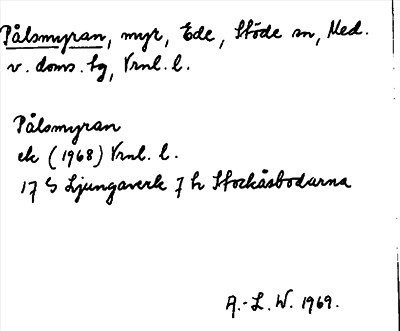 Pålsmyran, myr, Ede, Stöde sn, Med.
v. doms. tg, Vrnl. l.
Pålsmyran
ek (1968) Vrnl. l.
17 S Ljungaverk 7 h Stockåsbodarna
A.-L. W. 1969.